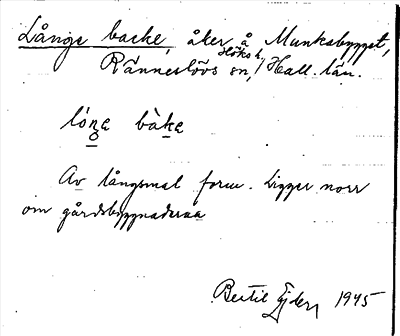 Långe backe, åker å Munkabygget,
Ränneslövs sn, Höks h., Hall. län.
lóŋa bàka
Av långsmal form. Ligger norr
om gårdsbyggnaderna
Bertil Ejder 1945